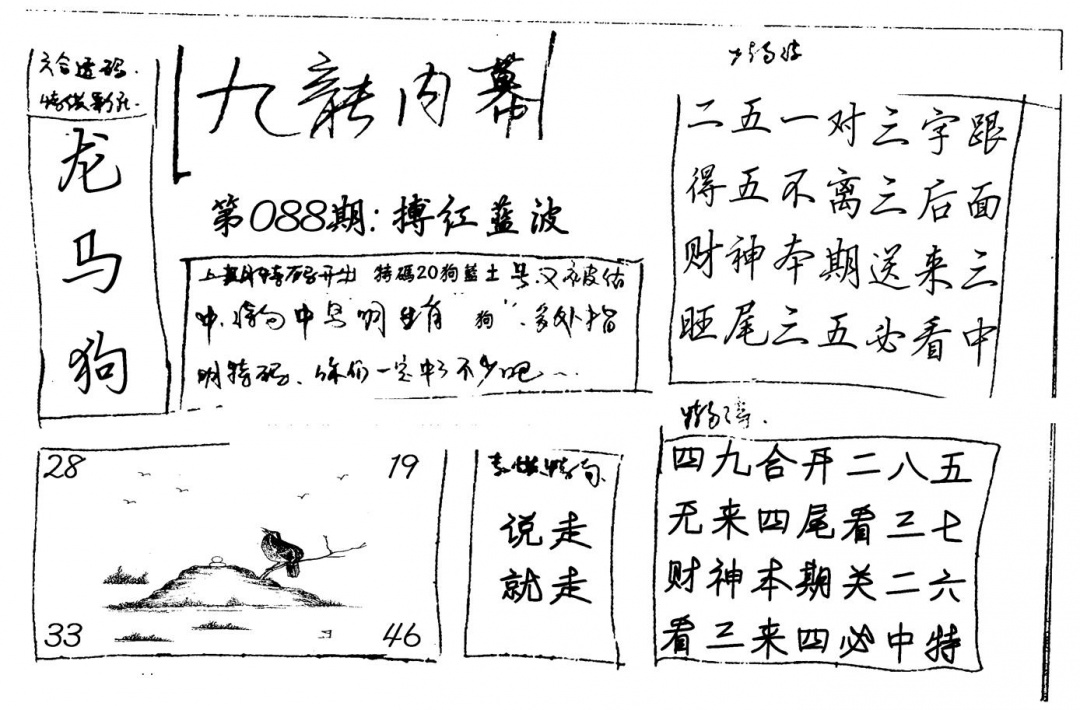 六合透码.
龙
马
狗
九龍内幕
第088期:搏红蓝波
上期特码开出 特碼20狗藍土号又被估
中 中 明 "狗" 多处指
明特码、你们一定中了不少吧
二五一对三字跟
得五不离三后面
财神本期送来三
旺尾三五必看中
28 19
33 46
说走
就走
四九合开二八五
无来四尾看三七
财神本期关二六
看三来四必中特